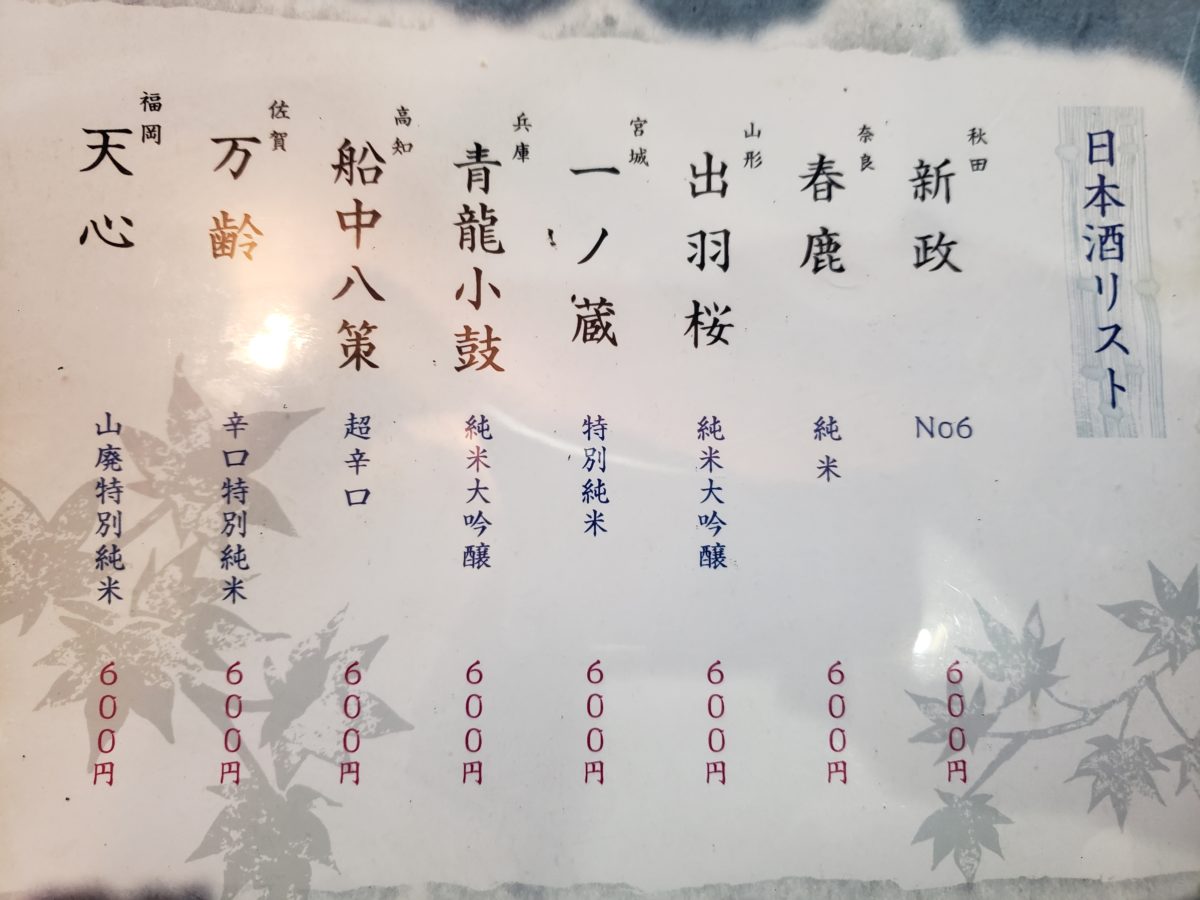 日本酒リスト
秋田
新政
No6
600円
奈良
春鹿
純米
600円
山形
出羽桜
純米大吟醸
600円
宮城
一ノ蔵
特別純米
600円
兵庫
青龍小鼓
純米大吟醸
600円
高知
船中八策
超辛口
600円
佐賀
万齢
辛口特別純米
600円
福岡
天心
山廃特別純米
600円